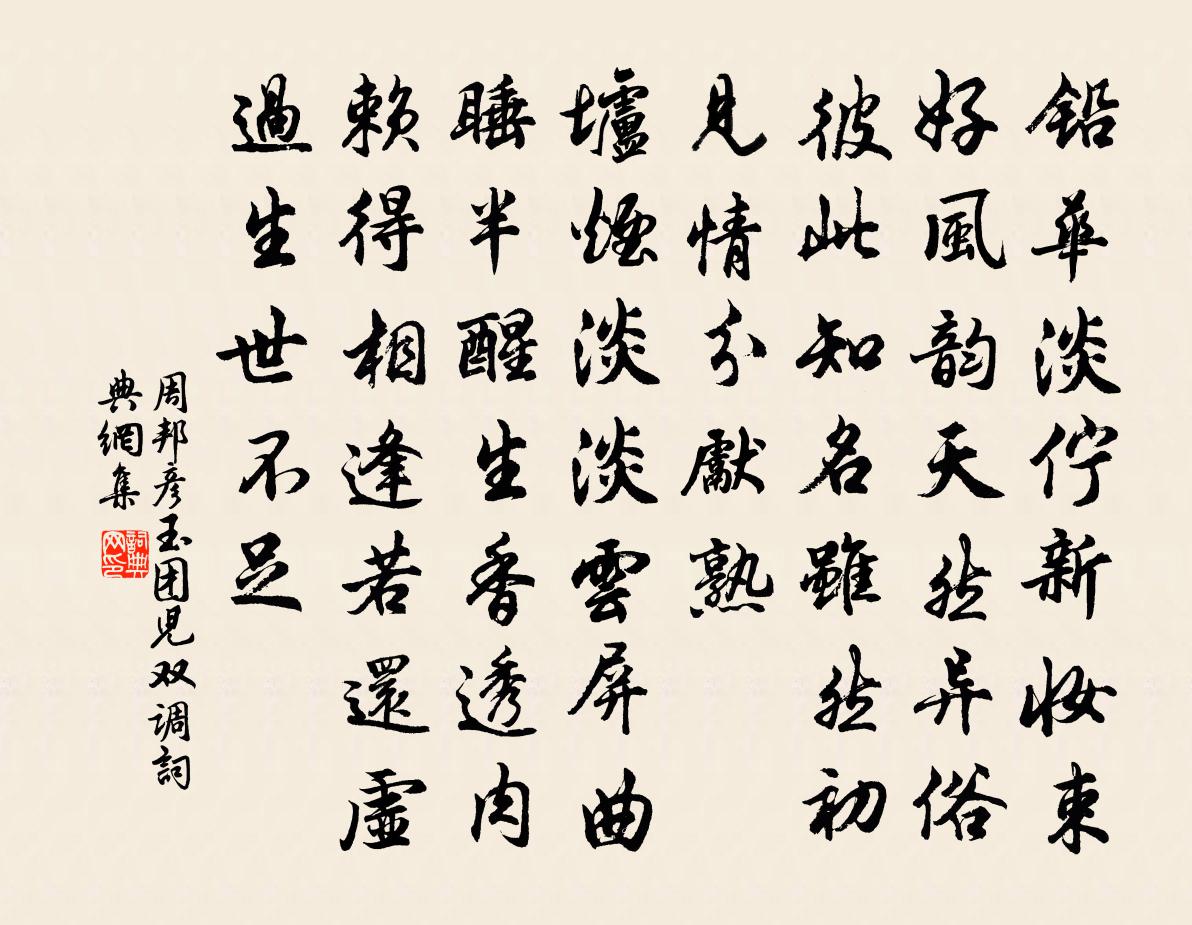 鉛華淡佇新妆束
好風韵天然异俗
彼此知名雖然初
見情分獻熟
壚煙淡淡雲屏曲
睡半醒生香透肉
賴得相逢若還虛
過生世不足
周邦彦玉团児双调詞
典網集
詞典
网印